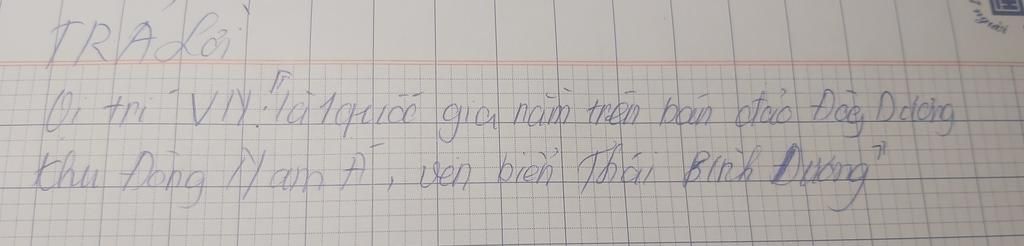 TRẢ Lời
Vị trí VN: "là 1 quốc gia nằm trên bán đảo Đôg Dương
khu Đông Nam Á, ven biển Thái Bình Dương"